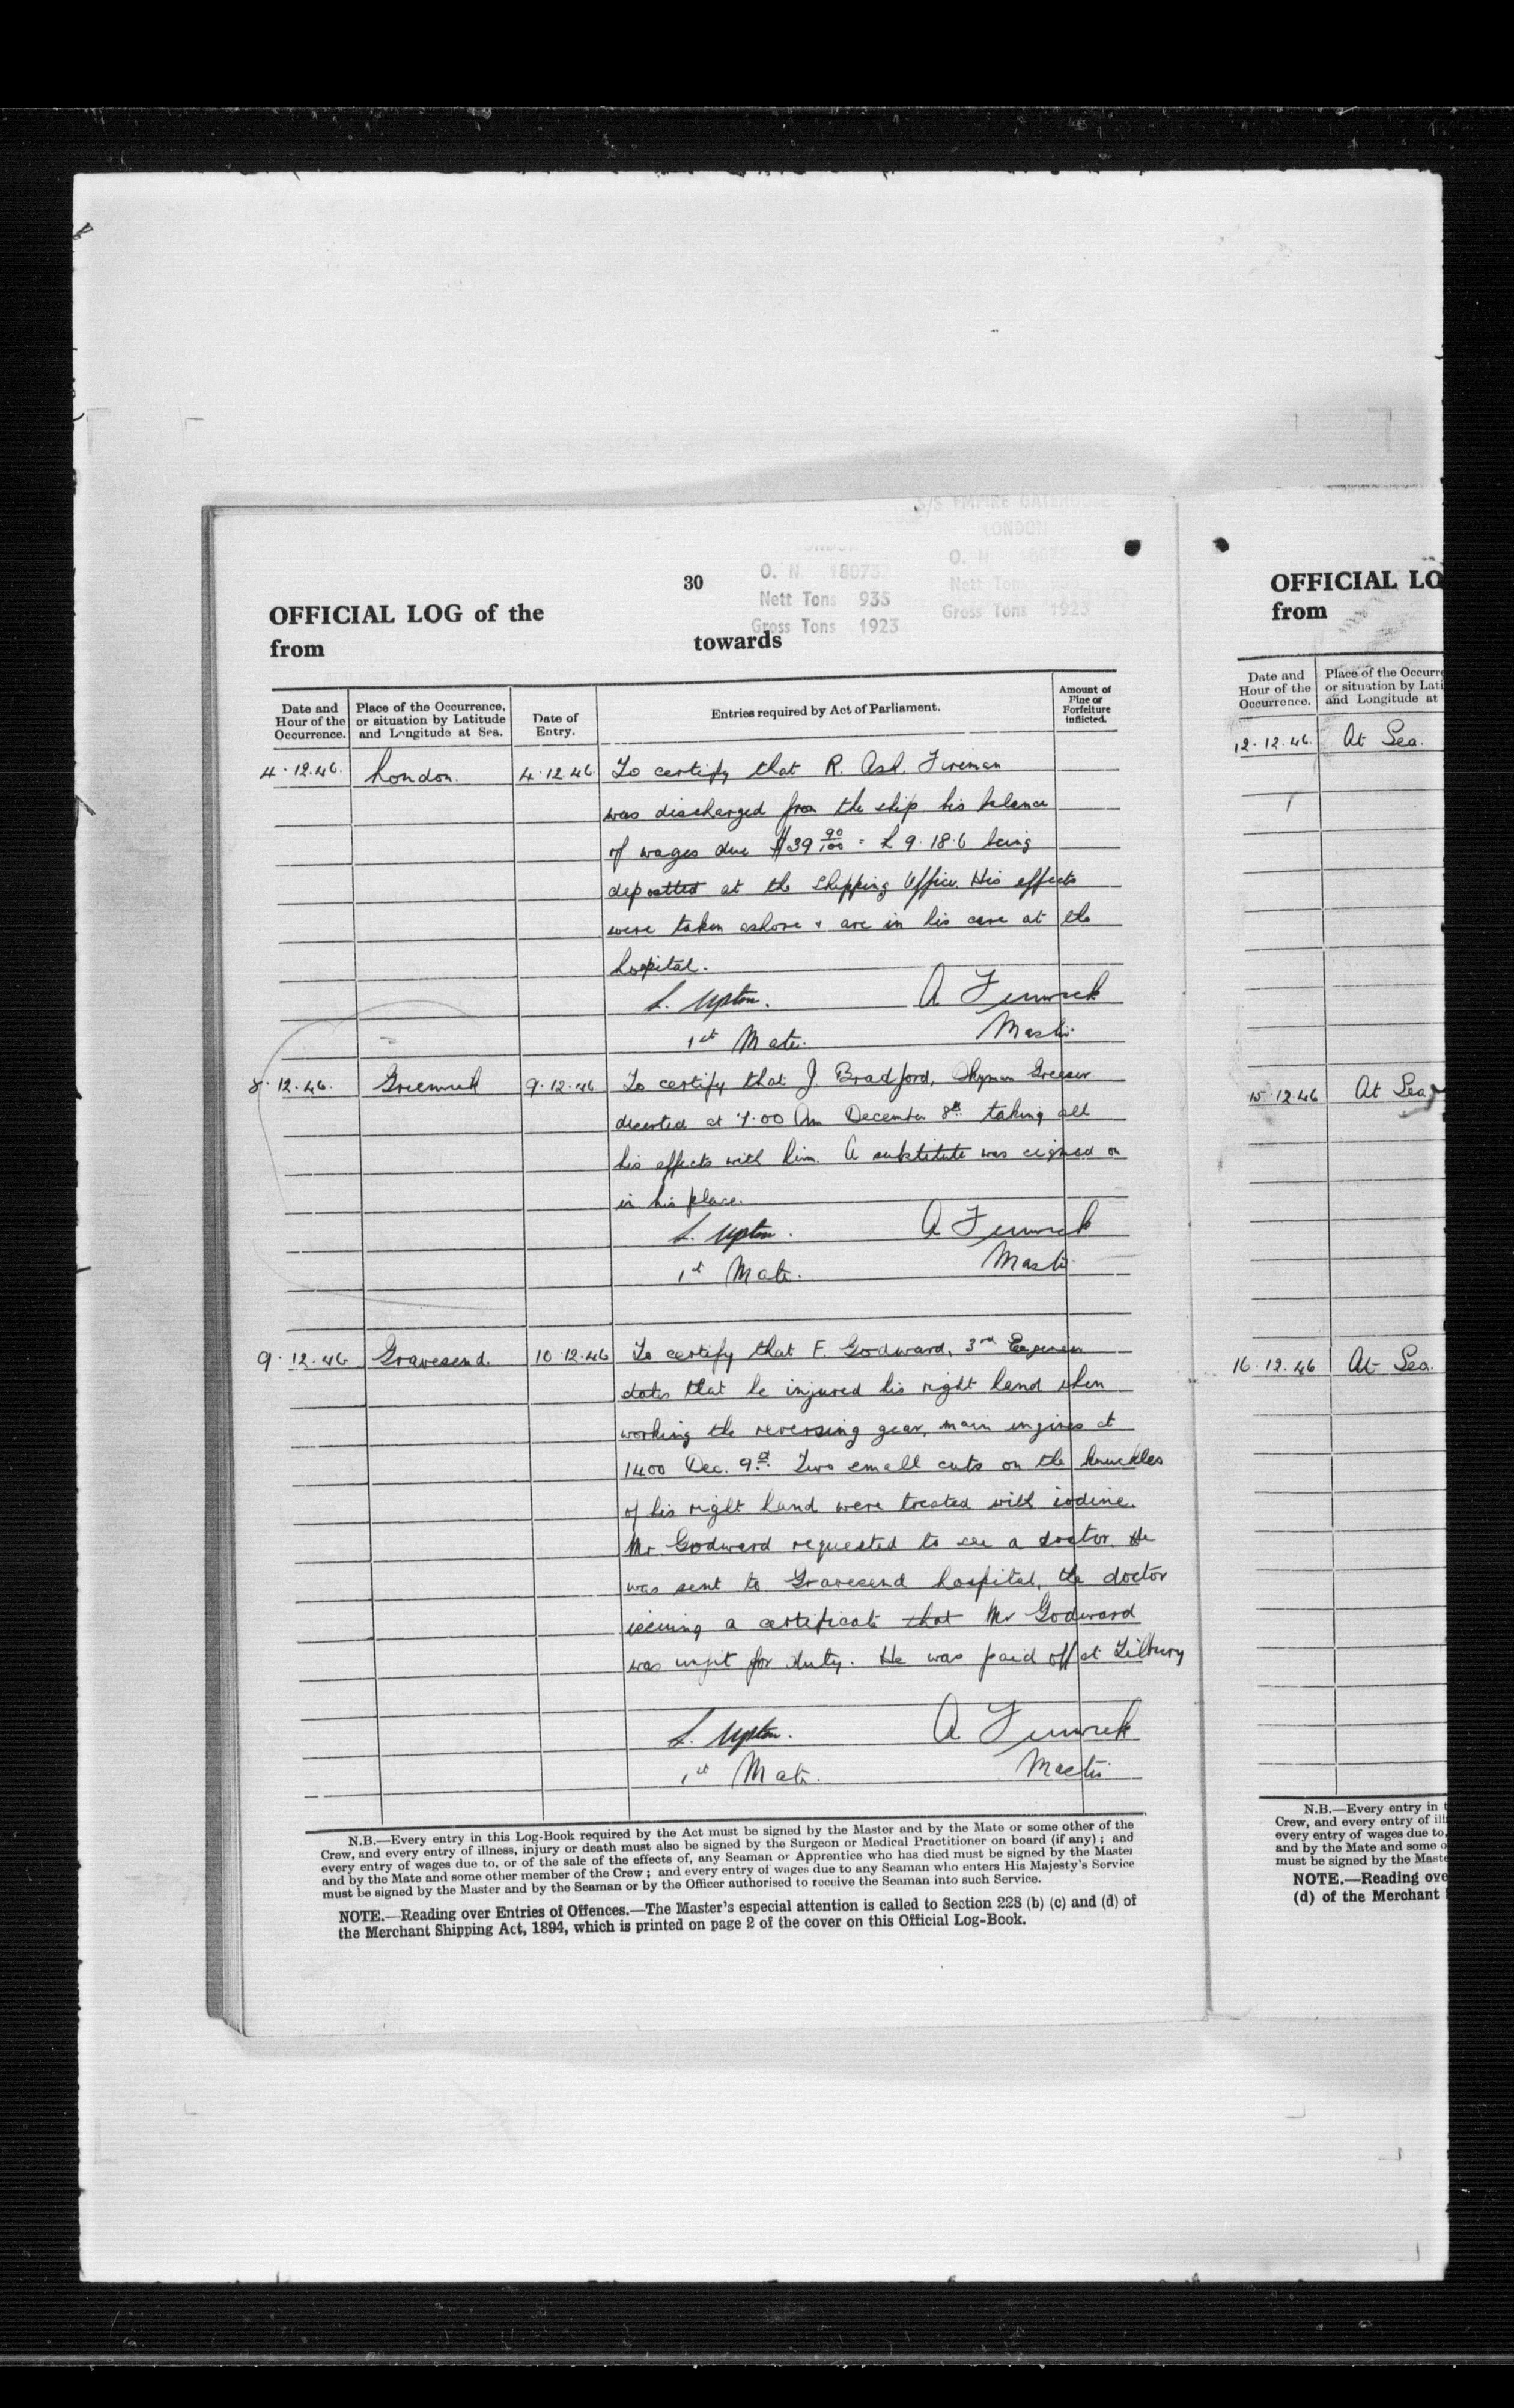 S/S EMPIRE GATEHOUSE
LONDON
O. N. 180737
Nett Tons 935
Gross Tons 1923
O. N. 18073
Nett Tons 935
Gross Tons 1923
30
OFFICIAL LOG of the
from towards
Date and Hour of the Occurrence.
Place of the Occurrence, or situation by Latitude and Longitude at Sea.
Date of Entry.
Entries required by Act of Parliament.
Amount of Fine or Forfeiture inflicted.
4.12.46. London. 4.12.46 To certify that R. Ash. Fireman
was discharged from the ship his balance
of wages due $39 90/100 = £9.18.6 being
deposited at the Shipping Office. His effects
were taken ashore & are in his care at the
hospital.
L. Upton. A Fenwick
1st Mate. Master
8.12.46. Greenwich 9.12.46 To certify that J. Bradford, Greaser
deserted at 7.00 Am December 8th taking all
his effects with him. A substitute was signed on
in his place.
L. Upton. A Fenwick
1st Mate. Master
9.12.46 Gravesend. 10.12.46 To certify that F. Godward, 3rd Engineer
states that he injured his right hand when
working the reversing gear, main engines at
1400 Dec. 9th. Two small cuts on the knuckles
of his right hand were treated with iodine.
Mr Godward requested to see a doctor. He
was sent to Gravesend hospital, the doctor
issuing a certificate that Mr Godward
was unfit for duty. He was paid off at Tilbury
L. Upton. A Fenwick
1st Mate. Master
N.B.—Every entry in this Log-Book required by the Act must be signed by the Master and by the Mate or some other of the
Crew, and every entry of illness, injury or death must also be signed by the Surgeon or Medical Practitioner on board (if any); and
every entry of wages due to, or of the sale of the effects of, any Seaman or Apprentice who has died must be signed by the Master
and by the Mate and some other member of the Crew; and every entry of wages due to any Seaman who enters His Majesty's Service
must be signed by the Master and by the Seaman or by the Officer authorised to receive the Seaman into such Service.
NOTE.—Reading over Entries of Offences.—The Master's especial attention is called to Section 228 (b) (c) and (d) of
the Merchant Shipping Act, 1894, which is printed on page 2 of the cover on this Official Log-Book.
OFFICIAL LO
from
Date and Hour of the Occurrence.
Place of the Occurre
or situation by Lati
and Longitude at
12.12.46. At Sea.
15.12.46 At Sea
16.12.46 At Sea.
N.B.—Every entry in t
Crew, and every entry of ill
every entry of wages due to,
and by the Mate and some o
must be signed by the Maste
NOTE.—Reading ove
(d) of the Merchant